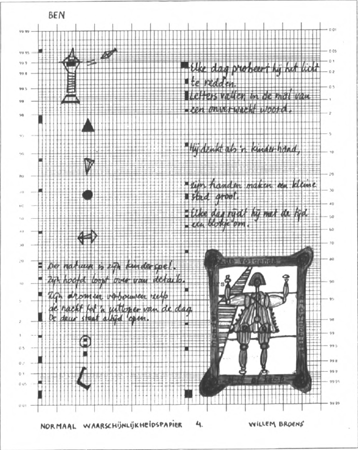 BEN
Elke dag probeert hij het licht
te redden.
Letters vallen in de mal van
een onverwacht woord.
Hij denkt als 'n kinderhand,
zijn handen maken een kleine
stad groot.
Elke dag rijdt hij met de tijd
een blokje om.
De natuur is zijn kinderspel.
Zijn hoofd loopt over van details.
Zijn dromen verbouwen
de nacht tot 'n uitloper van de dag
De deur staat altijd open.
NORMAAL WAARSCHIJNLIJKHEIDSPAPIER 4. WILLEM BROENS